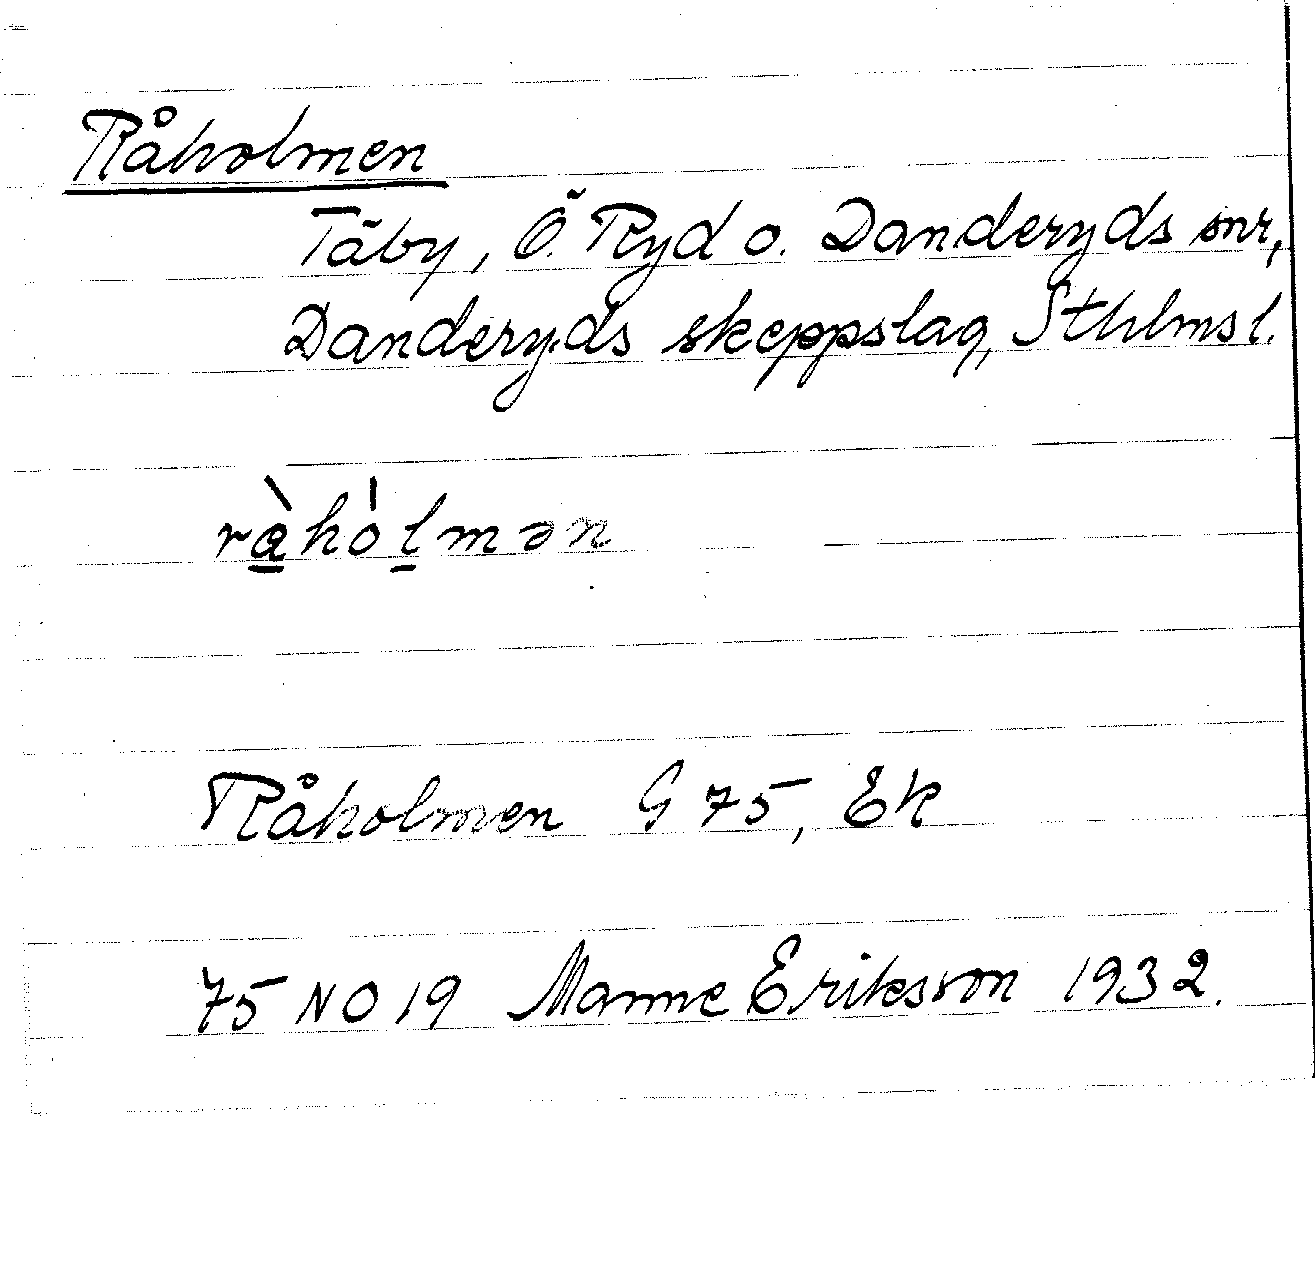 Råholmen
Täby, Ö. Ryd o. Danderyds snr,
Danderyds skeppslag, Sthlms l.
rà̱hóḻmən
Råholmen G 75, Ek
75 NO 19 Manne Eriksson 1932.